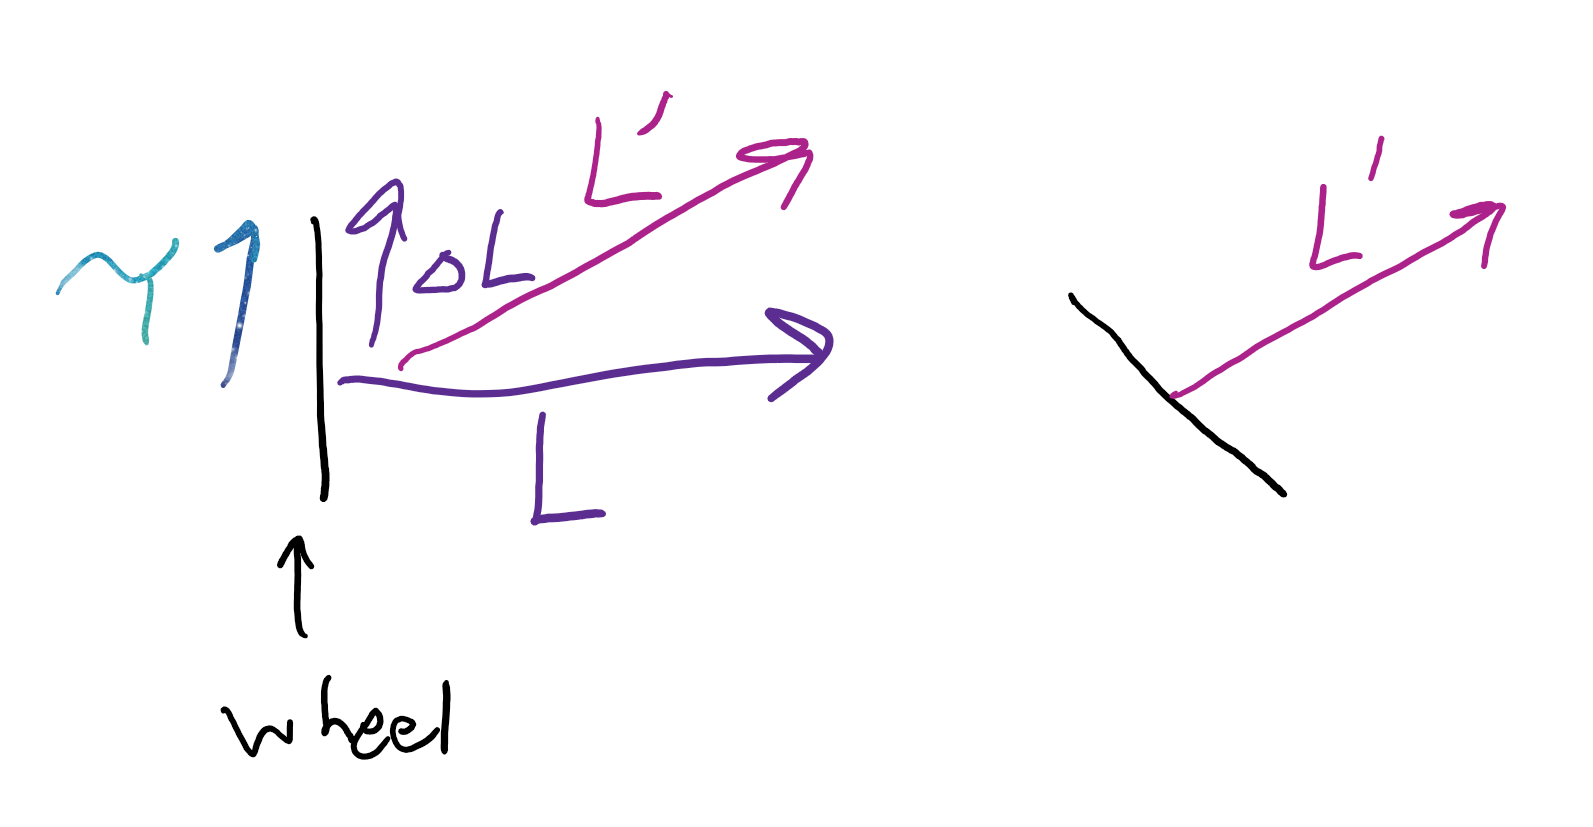 L'
ΔL
τ
L
wheel
L'